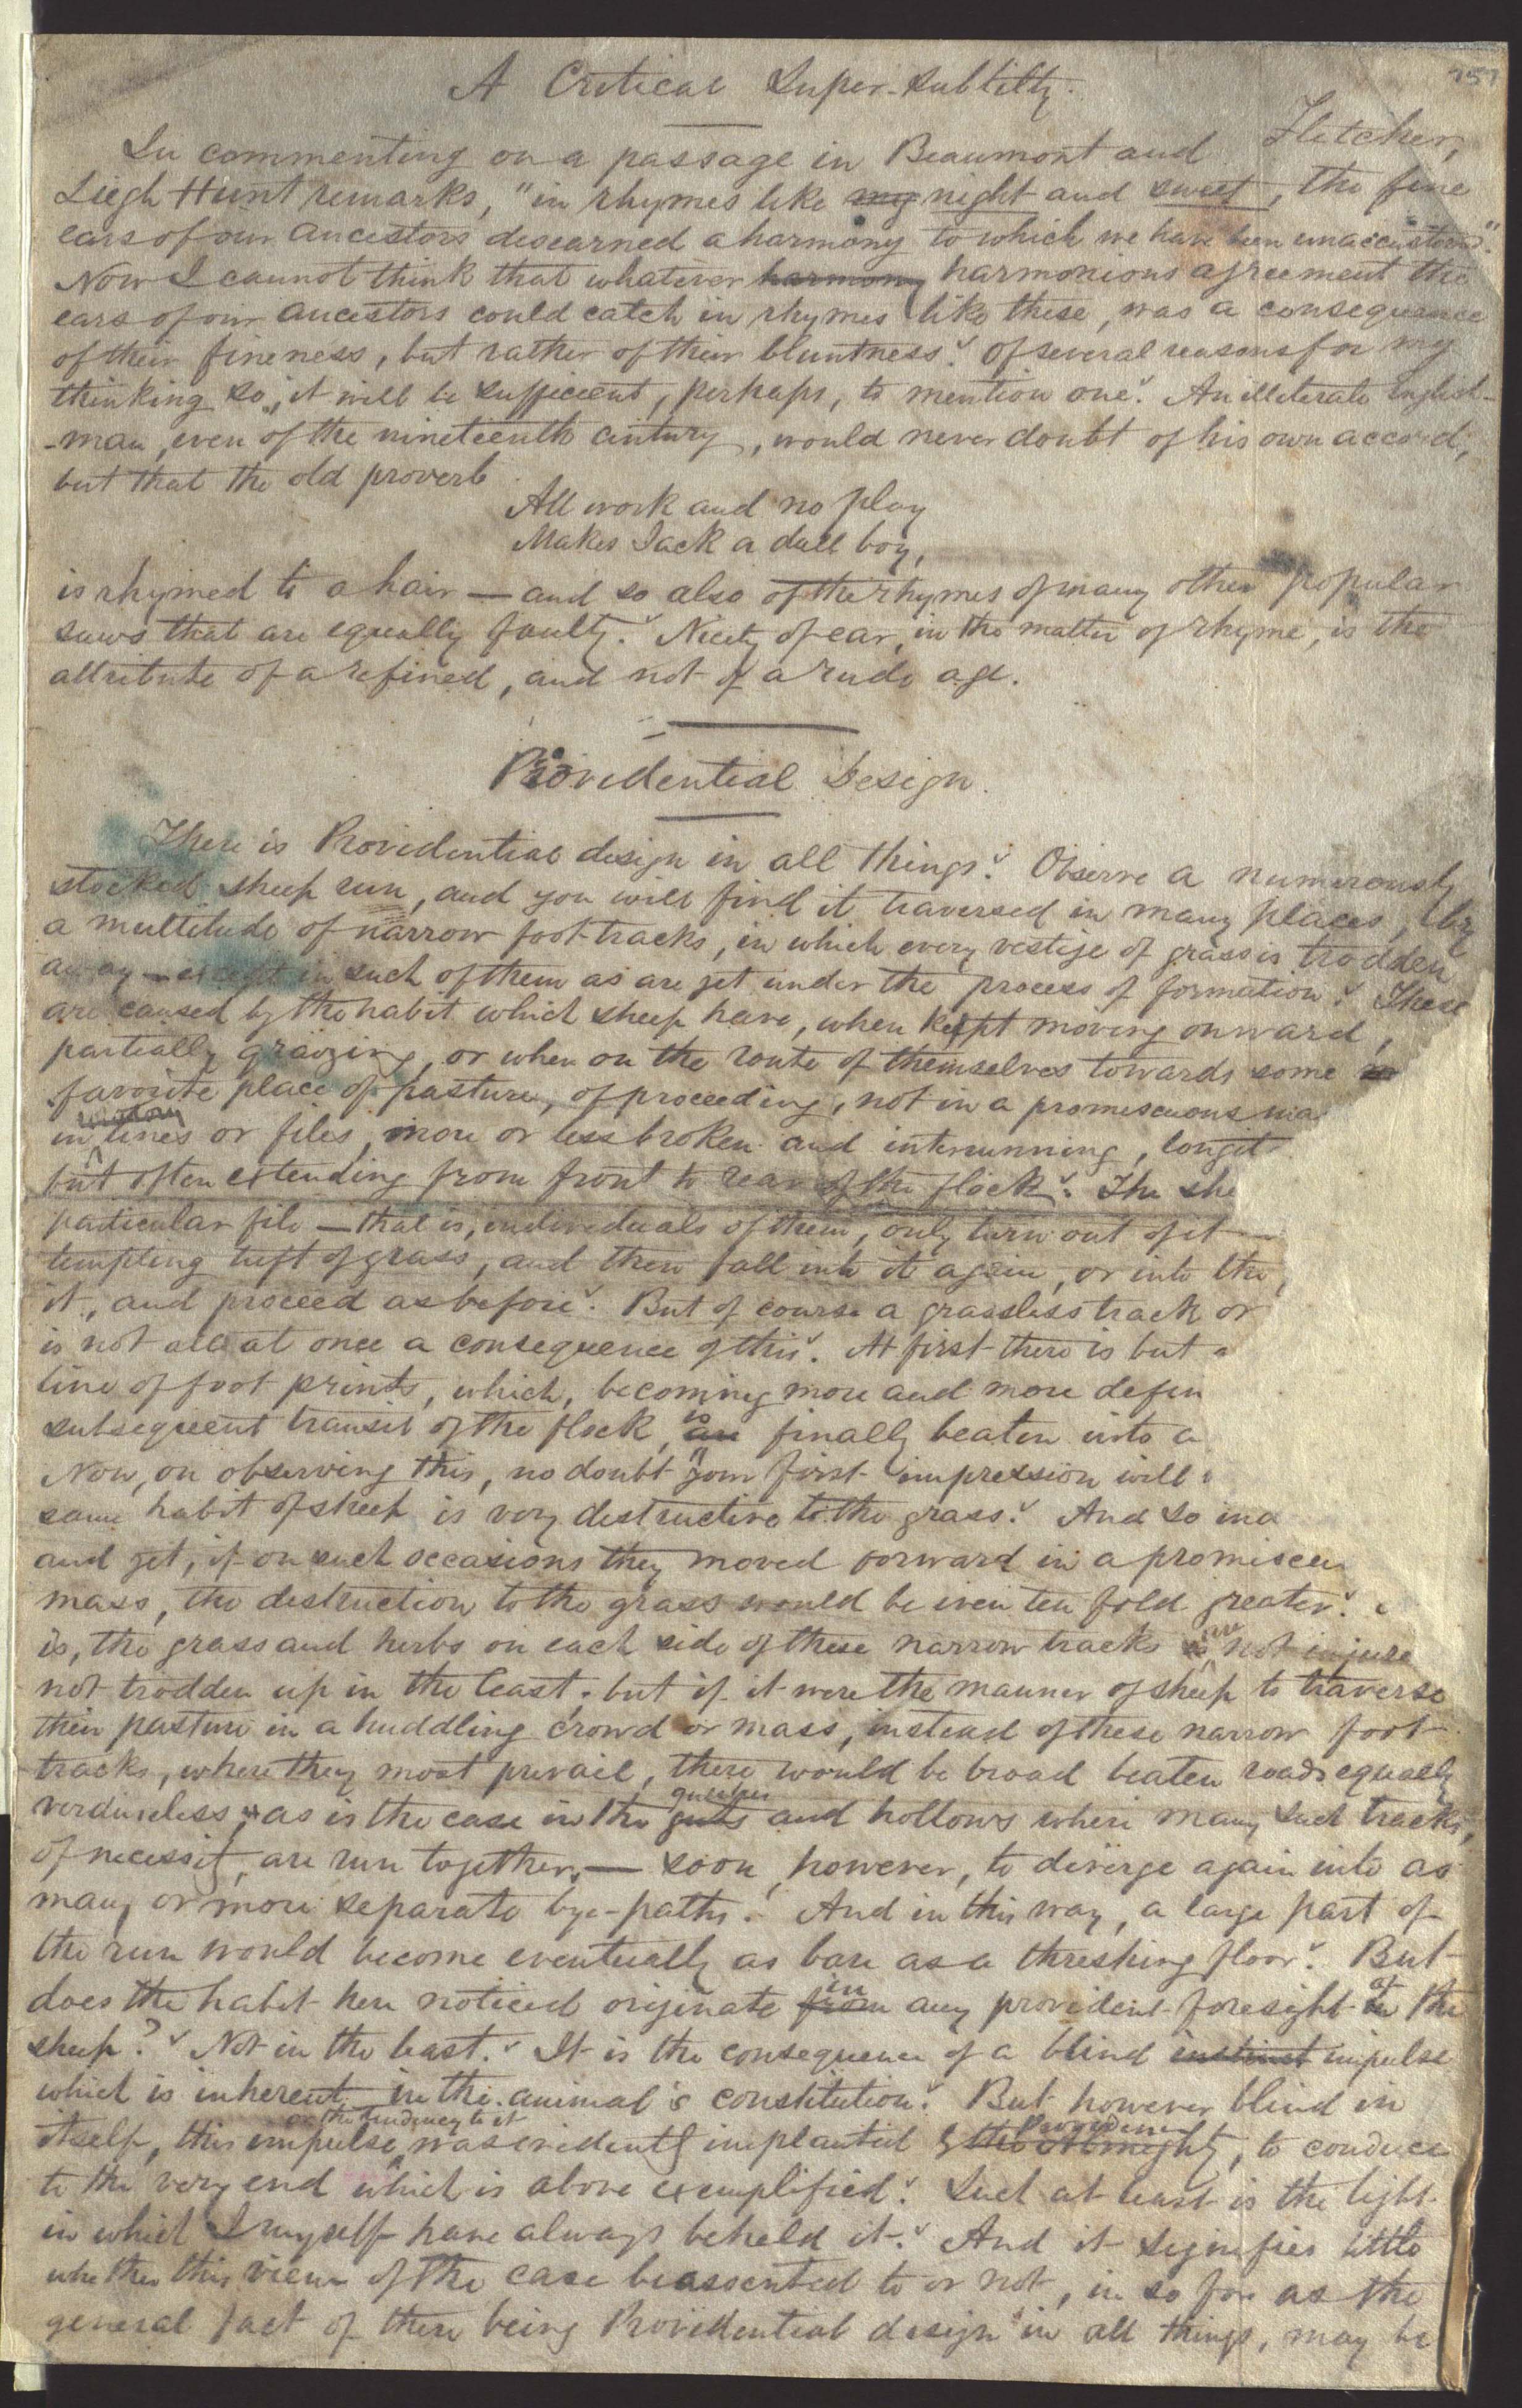 757
A Critical Super-subtilty.
In commenting on a passage in Beaumont and Fletcher,
Liegh Hunt remarks, "in rhymes like my night and sweet, the fine
ears of our ancestors descerned a harmony to which we have been unaccustomed."
Now I cannot think that whatever harmony harmonious agreement the
ears of our ancestors could catch in rhymes like these, was a consequence
of their fineness, but rather of their bluntness. Of several reasons for my
thinking so, it will be sufficient, perhaps, to mention one. An illiterate English-
-man, even of the nineteenth century, would never doubt of his own accord,
but that the old proverb
All work and no play
Makes Jack a dull boy,
is rhymed to a hair — and so also of the rhymes of many other popular
saws that are equally faulty. Nicety of ear, in the matter of rhyme, is the
attribute of a refined, and not of a rude age.
Providential Design.
There is Providential design in all things. Observe a numerously
stocked sheep run, and you will find it traversed in many places, by
a multitude of narrow foot-tracks, in which every vestige of grass is trodden
away — except in such of them as are yet under the process of formation. These
are caused by the habit which sheep have, when kept moving onward,
partially grazing, or when on the route of themselves towards some
favorite place of pasture, of proceeding, not in a promiscuous
in lines or files, more or less broken and interrunning,
but often extending from front to rear of the flock. The
particular file — that is, individuals of them, only turn out of it
tempting tuft of grass, and then fall into it again, or into the
it, and proceed as before. But of course a grassless track or
is not all at once a consequence of this. At first there is but a
line of foot prints, which, becoming more and more
subsequent transit of the flock, are is finally beaten into a
Now, on observing this, no doubt your first impression will
same habit of sheep is very destructive to the grass. And so
and yet, if on such occasions they moved forward in a
mass, the destruction to the grass would be even ten fold greater.
is, the grass and herbs on each side of these narrow tracks is are not injure
not trodden up in the least; but if it were the manner of sheep to traverse
their pasture in a huddling crowd or mass, instead of these narrow foot-
tracks, where they most prevail, there would be broad beaten roads equally
verdureless, as is the case in the guts gullies and hollows where many such tracks,
of necessity, are run together, — soon, however, to diverge again into as
many or more separate bye-paths. And in this way, a large part of
the run would become eventually as bare as a threshing floor. But
does the habit here noticed originate from in any provident foresight in of the
sheep? Not in the least. It is the consequence of a blind instinct impulse
which is inherent in the animal's constitution. But however blind in
itself, this impulse, or the tendency to it was evidently implanted by the Almighty Providence, to conduce
to the very end which is above exemplified. Such at least is the light
in which I myself have always beheld it. And it signifies little
whether this view of the case be assented to or not, in so far as the
general fact of there being Providential design in all things, may be